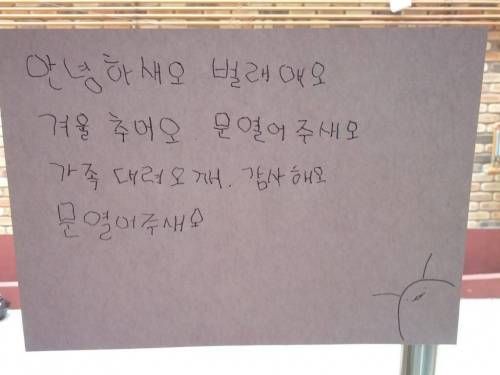 안녕하새오 벌래애오
겨울 추어오 문열어주새오
가족 대려오깨. 감사해오
문열어주새오